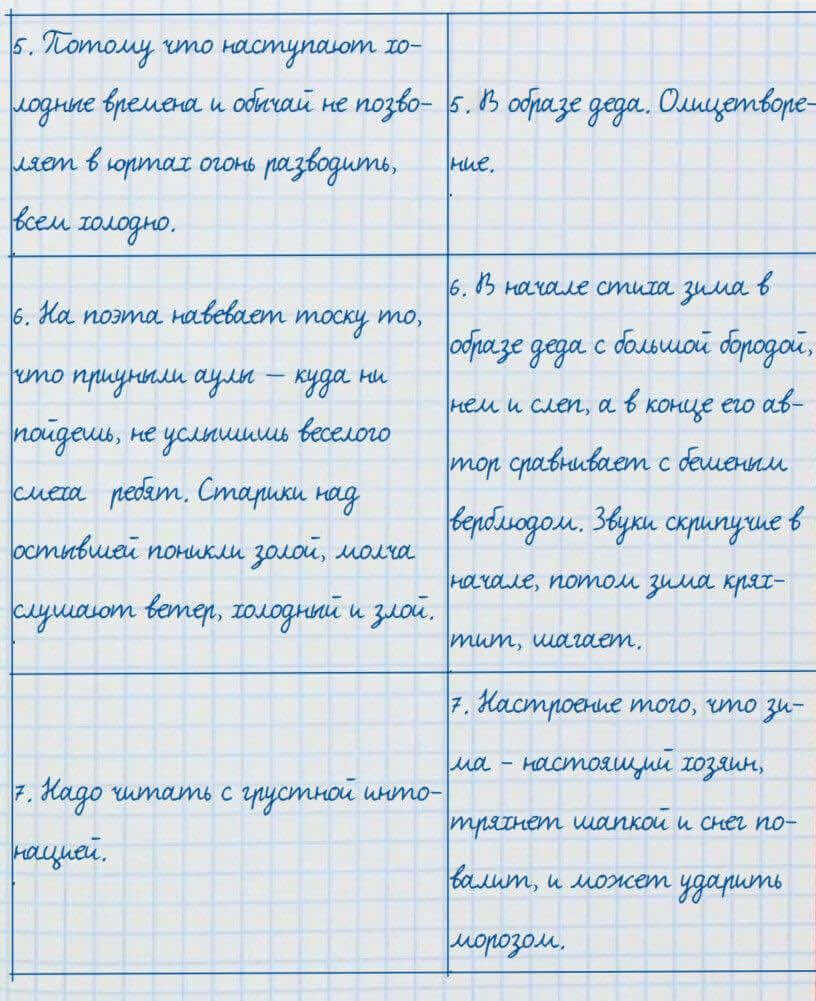 5. Потому что наступают хо-
лодные времена и обычай не позво-
ляет в юртах огонь разводить,
всем холодно.
5. В образе деда. Олицетворе-
ние.
6. На поэта навевает тоску то,
что приуныли аулы — куда ни
пойдешь, не услышишь веселого
смеха ребят. Старики над
остывшей поникли золой, молча
слушают ветер, холодный и злой.
6. В начале стиха зима в
образе деда с большой бородой,
нем и слеп, а в конце его ав-
тор сравнивает с бешеным
верблюдом. Звуки скрипучие в
начале, потом зима крях-
тит, шагает.
7. Надо читать с грустной инто-
нацией.
7. Настроение того, что зи-
ма - настоящий хозяин,
тряхнет шапкой и снег по-
валит, и может ударить
морозом.